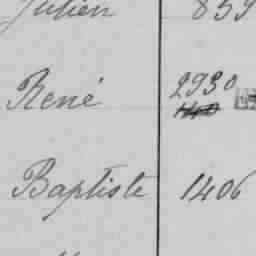 Julien 859
René 2930
Baptiste 1406